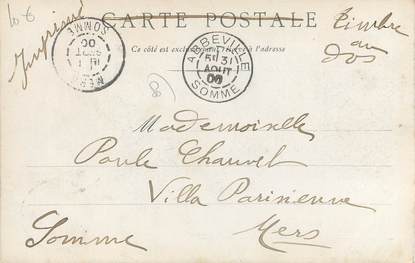 10 €
Imprimé
CARTE POSTALE
Ce côté est exclusivement réservé à l'adresse
Timbre
au
dos
MERS
SOMME
1 SEPT
00
ABBEVILLE
31
AOUT
00
SOMME
8
Mademoiselle
Paule Chauvet
Villa Parisienne
Mers
Somme